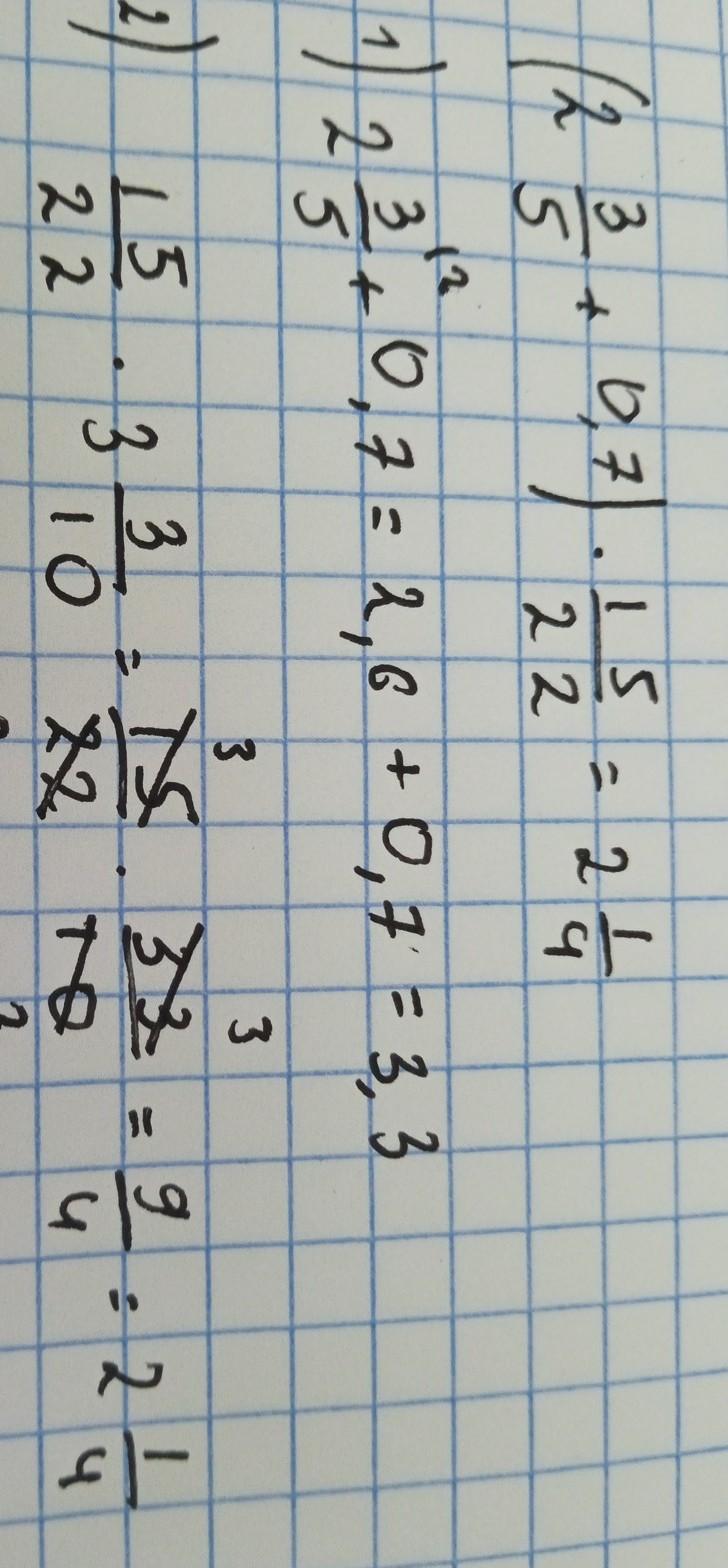 (2 3/5 + 0,7) · 15/22 = 2 1/4
1) 2 3/5 ^(2 + 0,7 = 2,6 + 0,7 = 3,3
2) 15/22 · 3 3/10 = 15/22 · 33/10 = 9/4 = 2 1/4
3 3
2 2